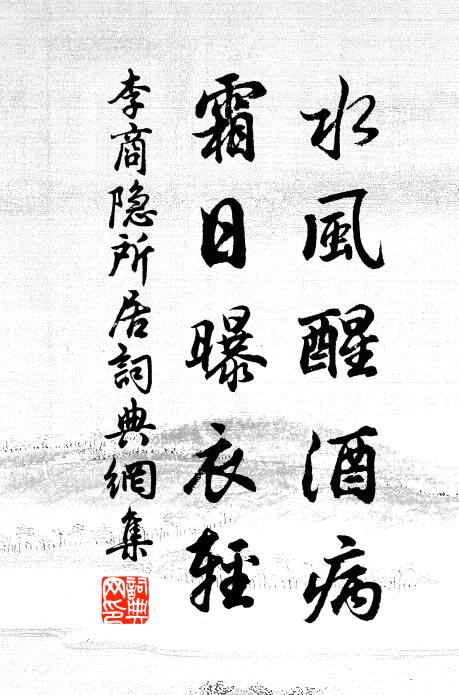 水風醒酒病
霜日曝衣輕
李商隐所居詞典網集
詞典
网印